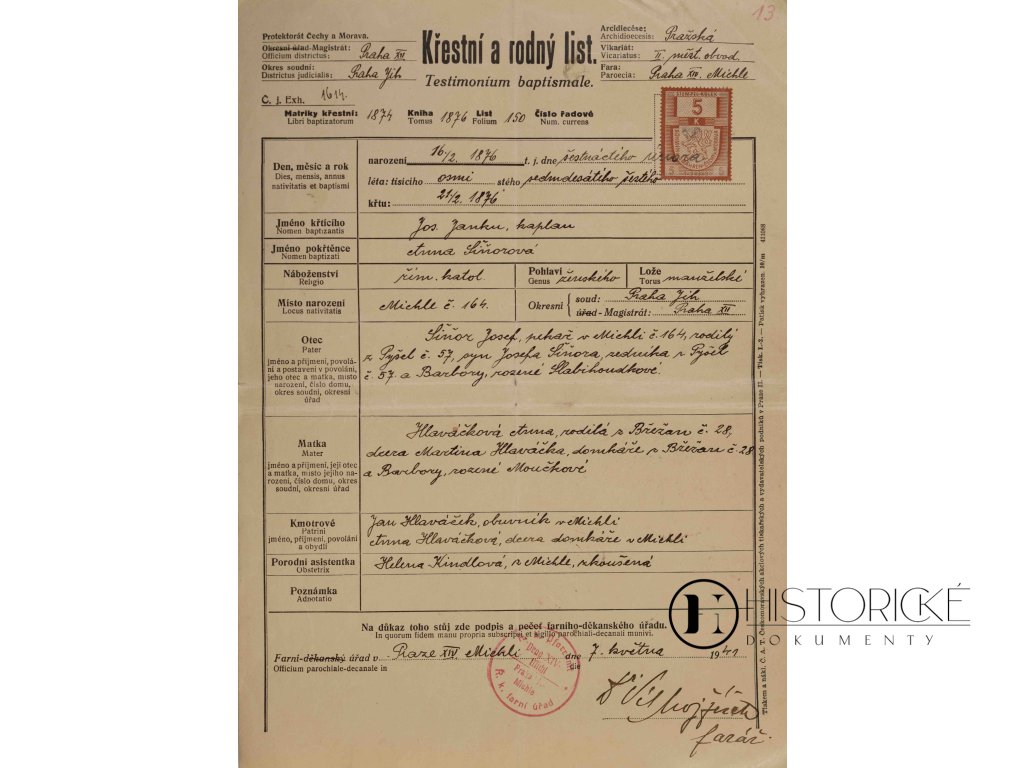 13.
Protektorát Čechy a Morava.
Okresní úřad-Magistrát: Praha XII
Officium districtus:
Okres soudní: Praha Jih
Districtus judicialis:
Č. j. Exh. 1614.
Křestní a rodný list.
Testimonium baptismale.
Arcidiecése: Pražská
Archidioecesis:
Vikariát: II. měst. obvod.
Vicariatus:
Fara: Praha XIV. Michle
Paroecia:
Matriky křestní: 1874 Kniha 1876 List 150 Číslo řadové
Libri baptizatorum Tomus Folium Num. currens
STEMPEL-KOLEK
5
K
Den, měsíc a rok
Dies, mensis, annus
nativitatis et baptismi
narození 16/2. 1876 t. j. dne šestnáctého února
léta: tisícího osmi stého sedmdesátého šestého
křtu: 21/2. 1876
Jméno křtícího
Nomen baptizantis
Jos. Janku, kaplan
Jméno pokřtěnce
Nomen baptizati
Anna Siňorová
Náboženství
Religio
řím. katol.
Pohlaví ženského
Genus
Lože manželské
Torus
Místo narození
Locus nativitatis
Michle č. 164.
Okresní soud: Praha Jih
úřad - Magistrát: Praha XII
Otec
Pater
jméno a příjmení, povolá-
ní a postavení v povolání,
jeho otec a matka, místo
narození, číslo domu,
okres soudní, okresní
úřad
Siňor Josef, pekař v Michli č. 164, rodilý
z Pyšel č. 57, syn Josefa Siňora, zedníka z Pyšel
č. 57. a Barbory, rozené Slabihoudkové.
Matka
Mater
jméno a příjmení, její otec
a matka, místo jejího na-
rození, číslo domu, okres
soudní, okresní úřad
Hlaváčková Anna, rodilá z Břežan č. 28,
dcera Martina Hlaváčka, domkáře z Břežan č. 28
a Barbory, rozené Moučkové
Kmotrové
Patrini
jméno, příjmení, povolání
a obydlí
Jan Hlaváček, obuvník v Michli
Anna Hlaváčková, dcera domkáře v Michli
Porodní asistentka
Obstetrix
Helena Kindlová, z Michle, zkoušená
Poznámka
Adnotatio
Na důkaz toho stůj zde podpis a pečeť farního-děkanského úřadu.
In quorum fidem manu propria subscripsi et sigillo parochiali-decanali munivi.
Farní-děkanský úřad v Praze XIV Michli dne 7. května 1941
Officium parochiale-decanale in die
Praha
Michle
Ř. k. farní úřad
farář.
Tiskem a nákl. Č. A. T. Českomoravských akciových tiskařských a vydavatelských podniků v Praze II. — Tisk. I.-8. — Potisk vyhrazen. 10/m 411088
HISTORICKÉ
DOKUMENTY